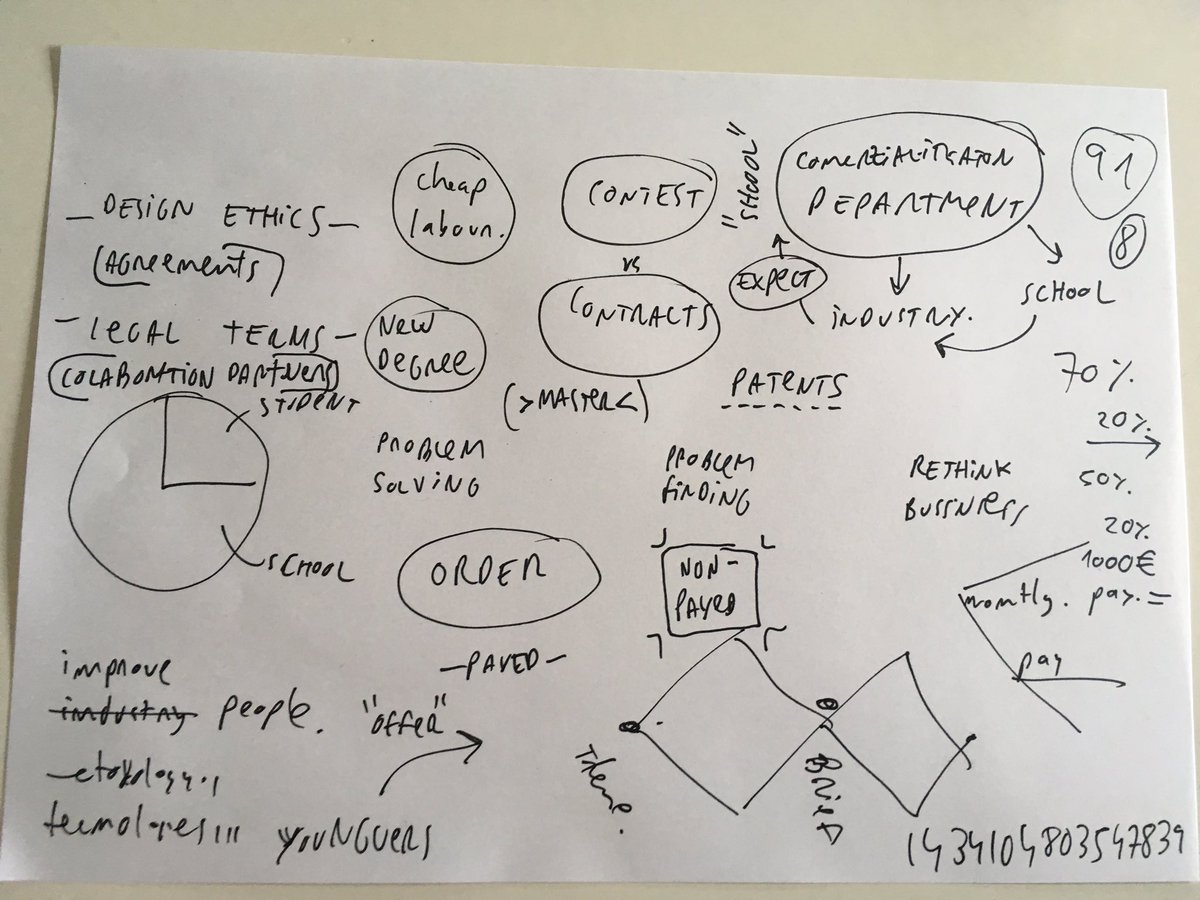 — DESIGN ETHICS —
(AGREEMENTS)
— LEGAL TERMS —
COLABORATION PARTNERS
STUDENT
SCHOOL
cheap
labour.
NEW
DEGREE
CONTEST
vs
CONTRACTS
(>MASTER<)
"SHCOOL"
EXPECT
COMERZIALITZATON
DEPARTMENT
INDUSTRY.
SCHOOL
91
8
PATENTS
PROBLEM
SOLVING
PROBLEM
FINDING
RETHINK
BUSSINESS
70%
20%
50%
20%
1000€
montly. pay. =
pay
ORDER
— PAYED —
NON-
PAYED
improve
industry people.
"OFFER"
YOUNGUERS
Theme.
Brief